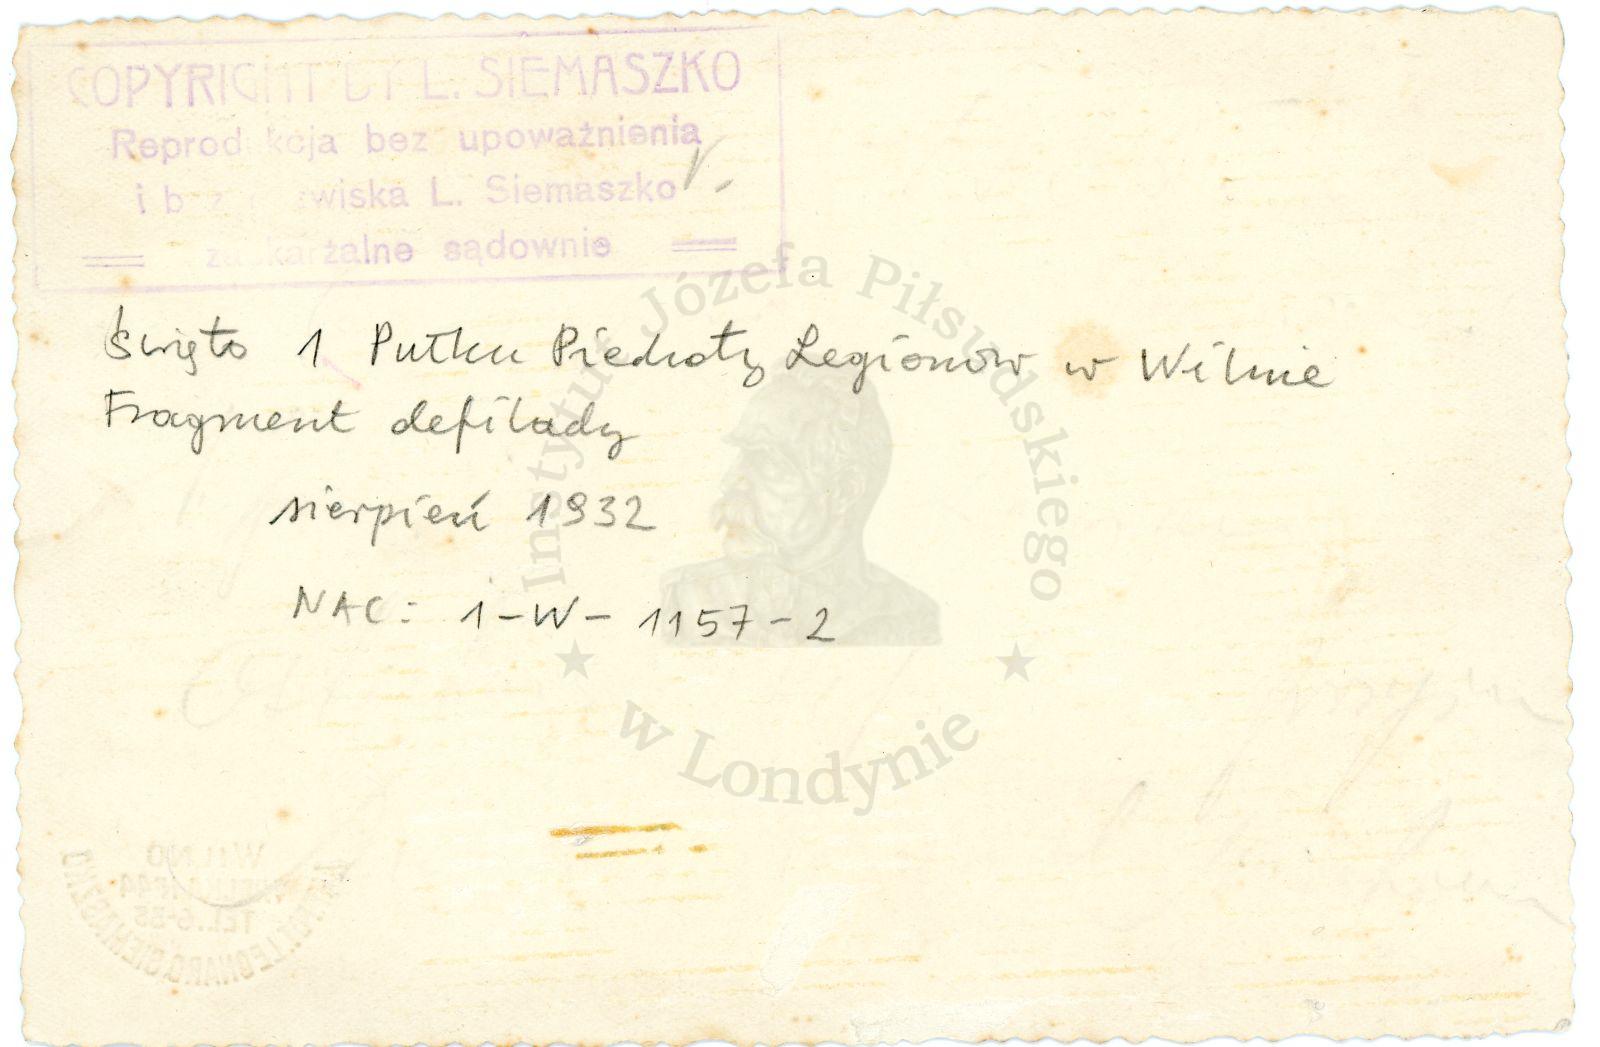 COPYRIGHT BY L. SIEMASZKO
Reprodukcja bez upoważnienia
i bez nazwiska L. Siemaszko
zaskarżalne sądownie
Święto 1 Pułku Piechoty Legionów w Wilnie
Fragment defilady
sierpień 1932
NAC: 1-W-1157-2
Instytut Józefa Piłsudskiego
w Londynie
WILNO
TEL. 6-55
LEONARD SIEMASZKO